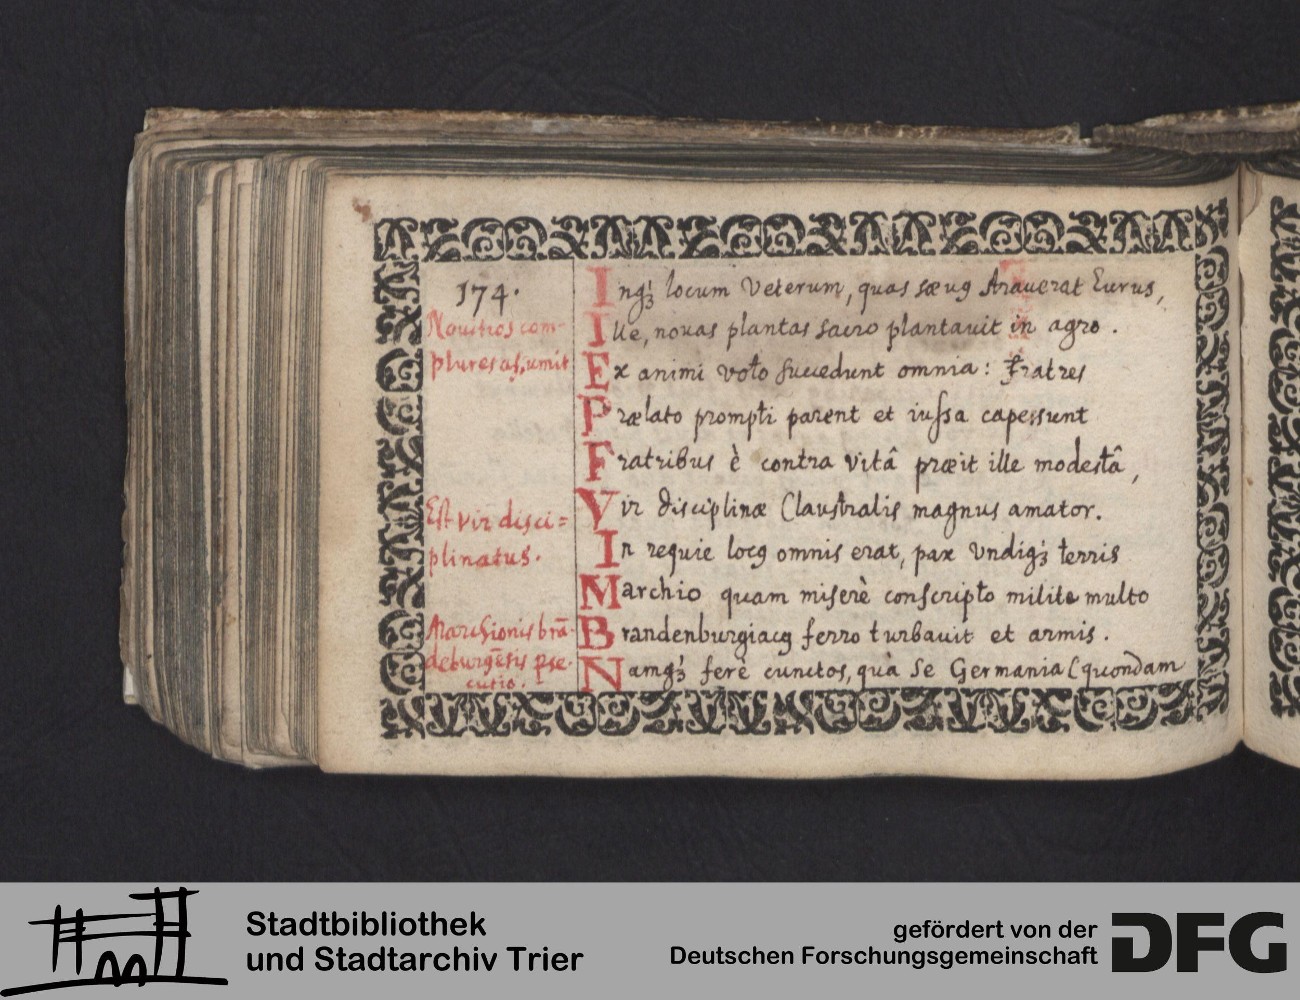 174.
Nouitios com-
plures assumit
Est vir disci=
plinatus.
Marchionis brā-
deburgēsis pse-
cutio.
Inq3 locum Veterum, quas sæug Arauerat Eurus,
Ille, nouas plantas sacro plantauit in agro.
Ex animi voto succedunt omnia: Fratres
Prælato prompti parent et iussa capessunt
Fratribus è contra vitâ præit ille modestâ,
Vir disciplinæ Claustralis magnus amator.
In requie locg omnis erat, pax vndiq3 terris
Marchio quam miserè conscripto milite multo
Brandenburgiacg ferro turbauit et armis.
Namq3 ferè cunctos, quà se Germania (quondam
Stadtbibliothek
und Stadtarchiv Trier
gefördert von der
Deutschen Forschungsgemeinschaft
DFG